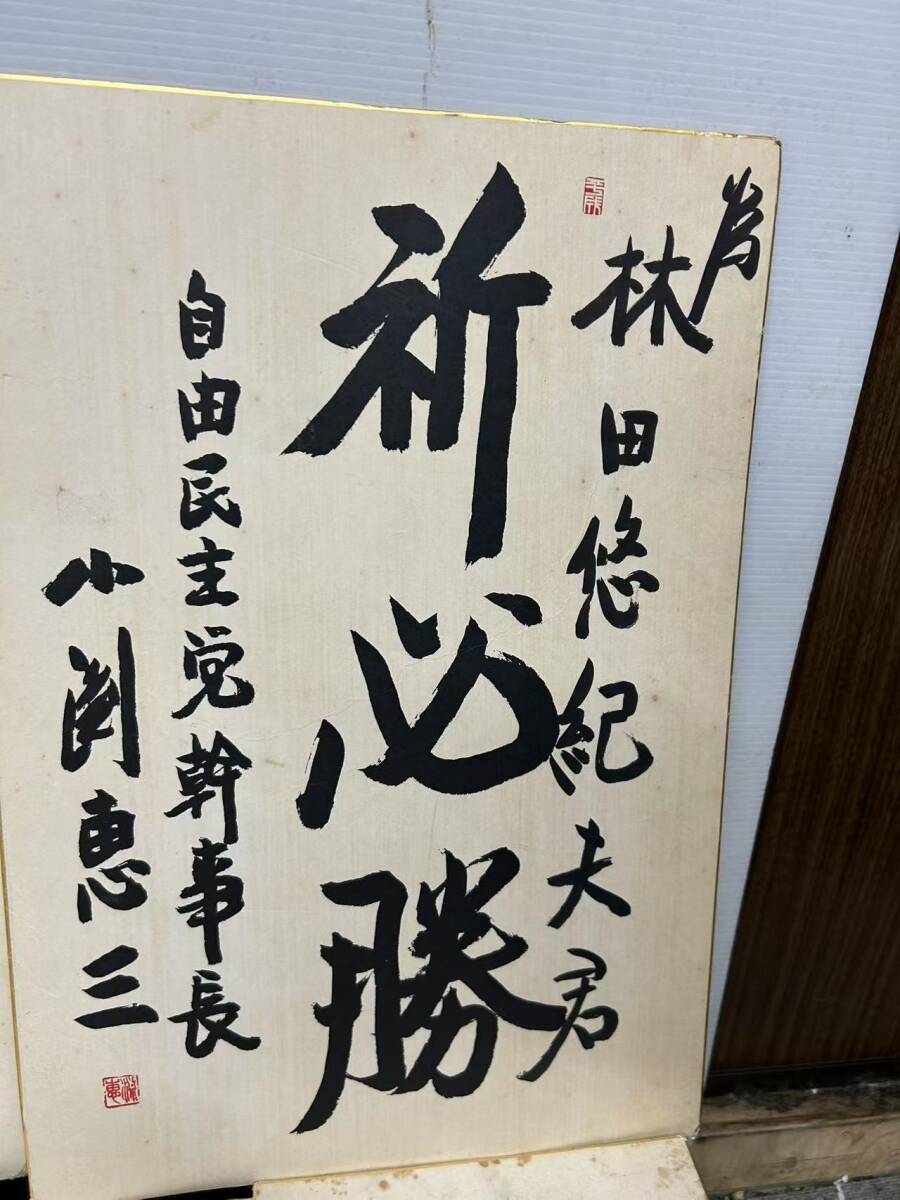 為
林田悠紀夫君
祈必勝
自由民主党幹事長
小渕恵三